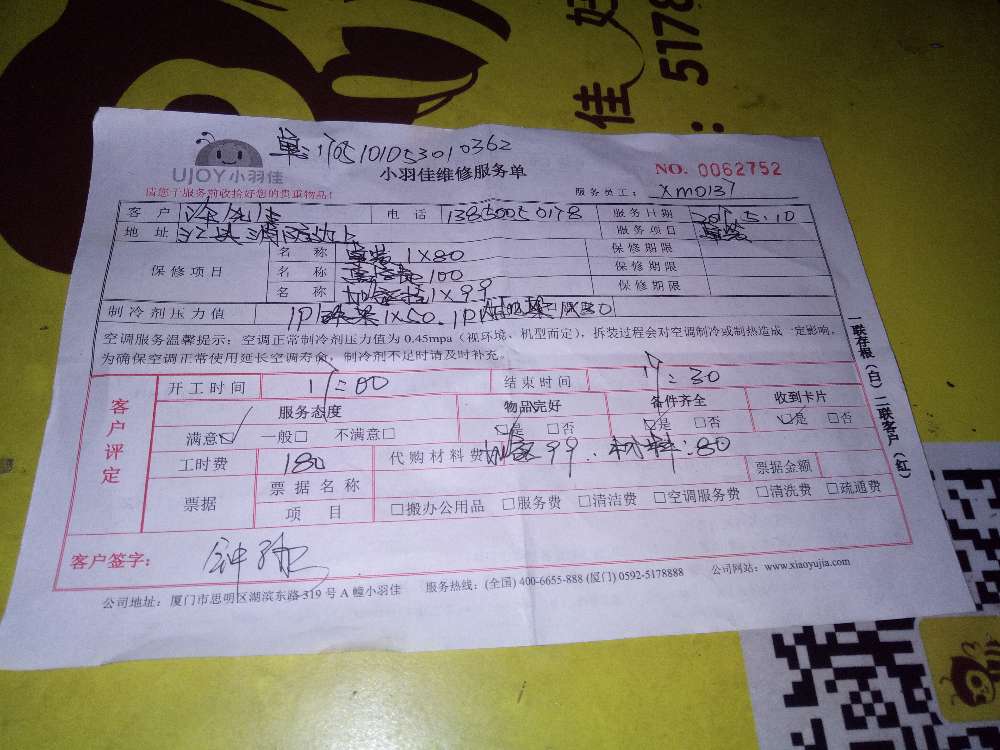 好
佳
: 5178
单: 1705101053010362
UJOY小羽佳
小羽佳维修服务单
NO. 0062752
请您于服务前收拾好您的贵重物品!
服务员工: XM0137
客户 电话 13850050178 服务日期 2017.5.10
地址 服务项目
保修项目 名称 1×80 保修期限
名称 100 保修期限
名称 1×99 保修期限
制冷剂压力值 1P 1×50. 1P
空调服务温馨提示: 空调正常制冷剂压力值为 0.45mpa (视环境、机型而定), 拆装过程会对空调制冷或制热造成一定影响,
为确保空调正常使用延长空调寿命, 制冷剂不足时请及时补充。
一联存根(白) 二联客户(红)
客户评定
开工时间 结束时间
服务态度 物品完好 备件齐全 收到卡片
满意☑ 一般□ 不满意□ ☑是 □否 ☑是 □否 ☑是 □否
工时费 180 代购材料费 99. 材料:80 票据金额
票据 票据名称
项目 □搬办公用品 □服务费 □清洁费 □空调服务费 □清洗费 □疏通费
客户签字:
公司地址: 厦门市思明区湖滨东路 319 号 A 幢小羽佳 服务热线: (全国) 400-6655-888 (厦门) 0592-5178888 公司网站: www.xiaoyujia.com